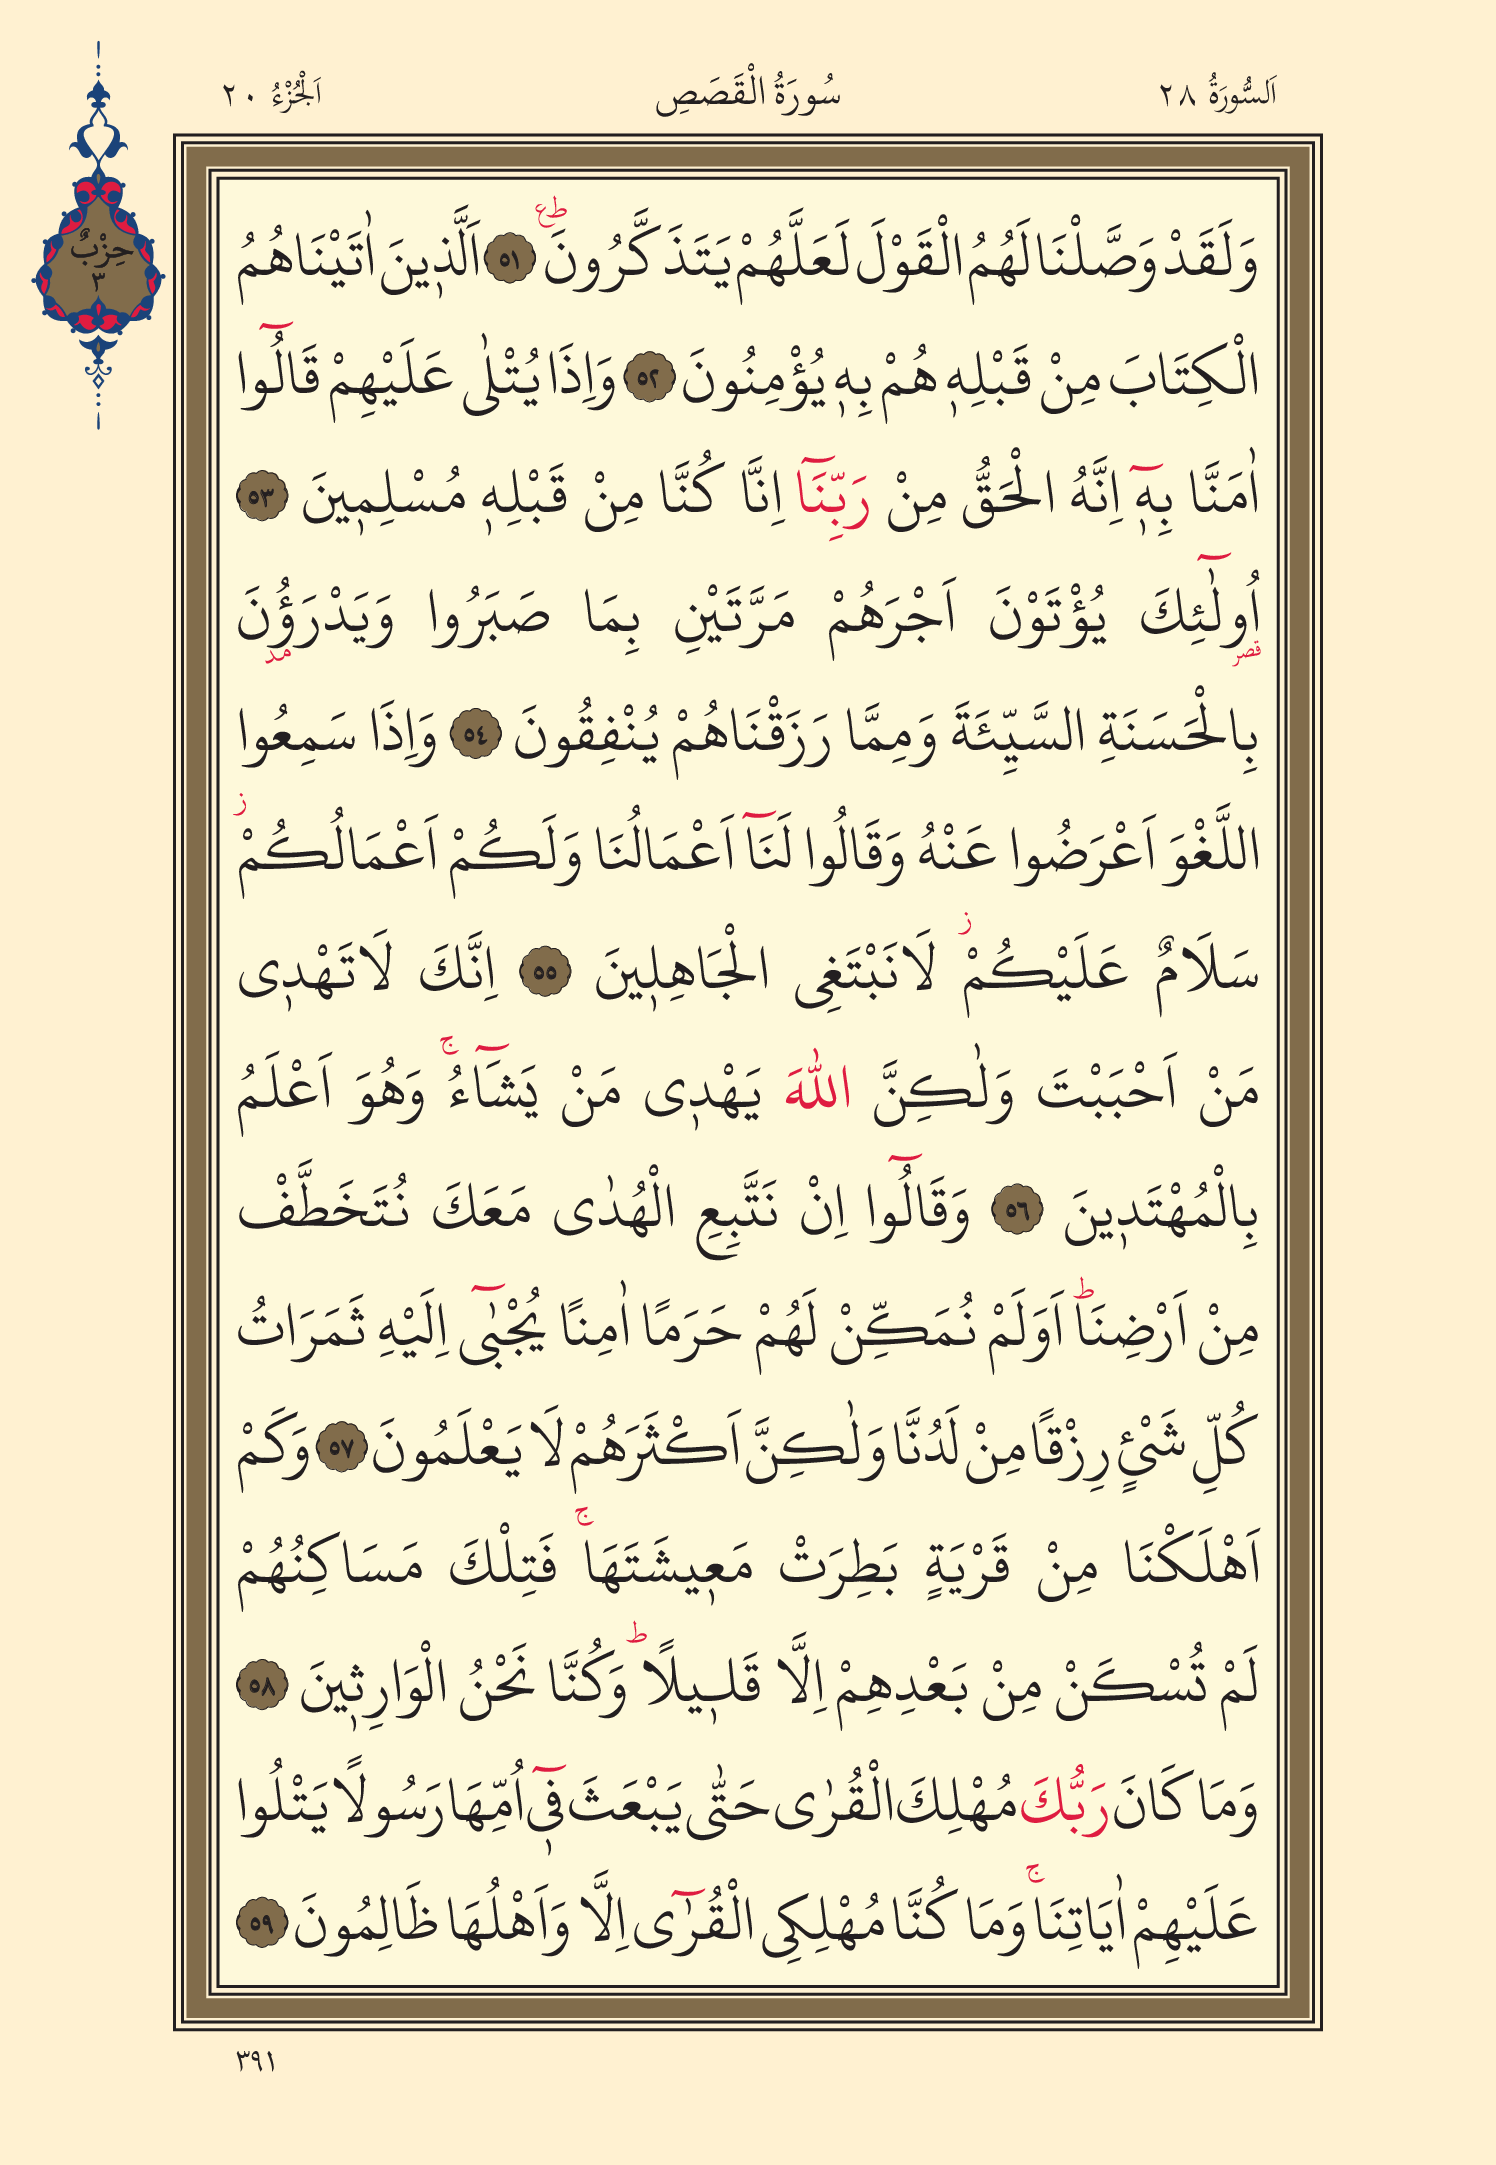 اَلسُّورَةُ ٢٨ سُورَةُ الْقَصَصِ اَلْجُزْءُ ٢٠
حِزْبٌ
٣
وَلَقَدْ وَصَّلْنَا لَهُمُ الْقَوْلَ لَعَلَّهُمْ يَتَذَكَّرُونَ ؕ ع ٥١ اَلَّذ۪ينَ اٰتَيْنَاهُمُ
الْكِتَابَ مِنْ قَبْلِه۪ هُمْ بِه۪ يُؤْمِنُونَ ٥٢ وَاِذَا يُتْلٰى عَلَيْهِمْ قَالُٓوا
اٰمَنَّا بِه۪ٓ اِنَّهُ الْحَقُّ مِنْ رَبِّنَٓا اِنَّا كُنَّا مِنْ قَبْلِه۪ مُسْلِم۪ينَ ٥٣
اُو۬لٰٓئِكَ يُؤْتَوْنَ اَجْرَهُمْ مَرَّتَيْنِ بِمَا صَبَرُوا وَيَدْرَؤُ۫نَ
قصر مد
بِالْحَسَنَةِ السَّيِّئَةَ وَمِمَّا رَزَقْنَاهُمْ يُنْفِقُونَ ٥٤ وَاِذَا سَمِعُوا
اللَّغْوَ اَعْرَضُوا عَنْهُ وَقَالُوا لَنَٓا اَعْمَالُنَا وَلَكُمْ اَعْمَالُكُمْ ز
سَلَامٌ عَلَيْكُمْ ز لَا نَبْتَغِى الْجَاهِل۪ينَ ٥٥ اِنَّكَ لَا تَهْد۪ى
مَنْ اَحْبَبْتَ وَلٰكِنَّ اللّٰهَ يَهْد۪ى مَنْ يَشَٓاءُۚ وَهُوَ اَعْلَمُ
بِالْمُهْتَد۪ينَ ٥٦ وَقَالُٓوا اِنْ نَتَّبِعِ الْهُدٰى مَعَكَ نُتَخَطَّفْ
مِنْ اَرْضِنَاۜ اَوَلَمْ نُمَكِّنْ لَهُمْ حَرَمًا اٰمِنًا يُجْبٰٓى اِلَيْهِ ثَمَرَاتُ
كُلِّ شَىْءٍ رِزْقًا مِنْ لَدُنَّا وَلٰكِنَّ اَكْثَرَهُمْ لَا يَعْلَمُونَ ٥٧ وَكَمْ
اَهْلَكْنَا مِنْ قَرْيَةٍ بَطِرَتْ مَع۪يشَتَهَاۚ فَتِلْكَ مَسَاكِنُهُمْ
لَمْ تُسْكَنْ مِنْ بَعْدِهِمْ اِلَّا قَل۪يلًاۜ وَكُنَّا نَحْنُ الْوَارِث۪ينَ ٥٨
وَمَا كَانَ رَبُّكَ مُهْلِكَ الْقُرٰى حَتّٰى يَبْعَثَ ف۪ٓى اُمِّهَا رَسُولًا يَتْلُوا
عَلَيْهِمْ اٰيَاتِنَاۚ وَمَا كُنَّا مُهْلِكِى الْقُرٰٓى اِلَّا وَاَهْلُهَا ظَالِمُونَ ٥٩
٣٩١